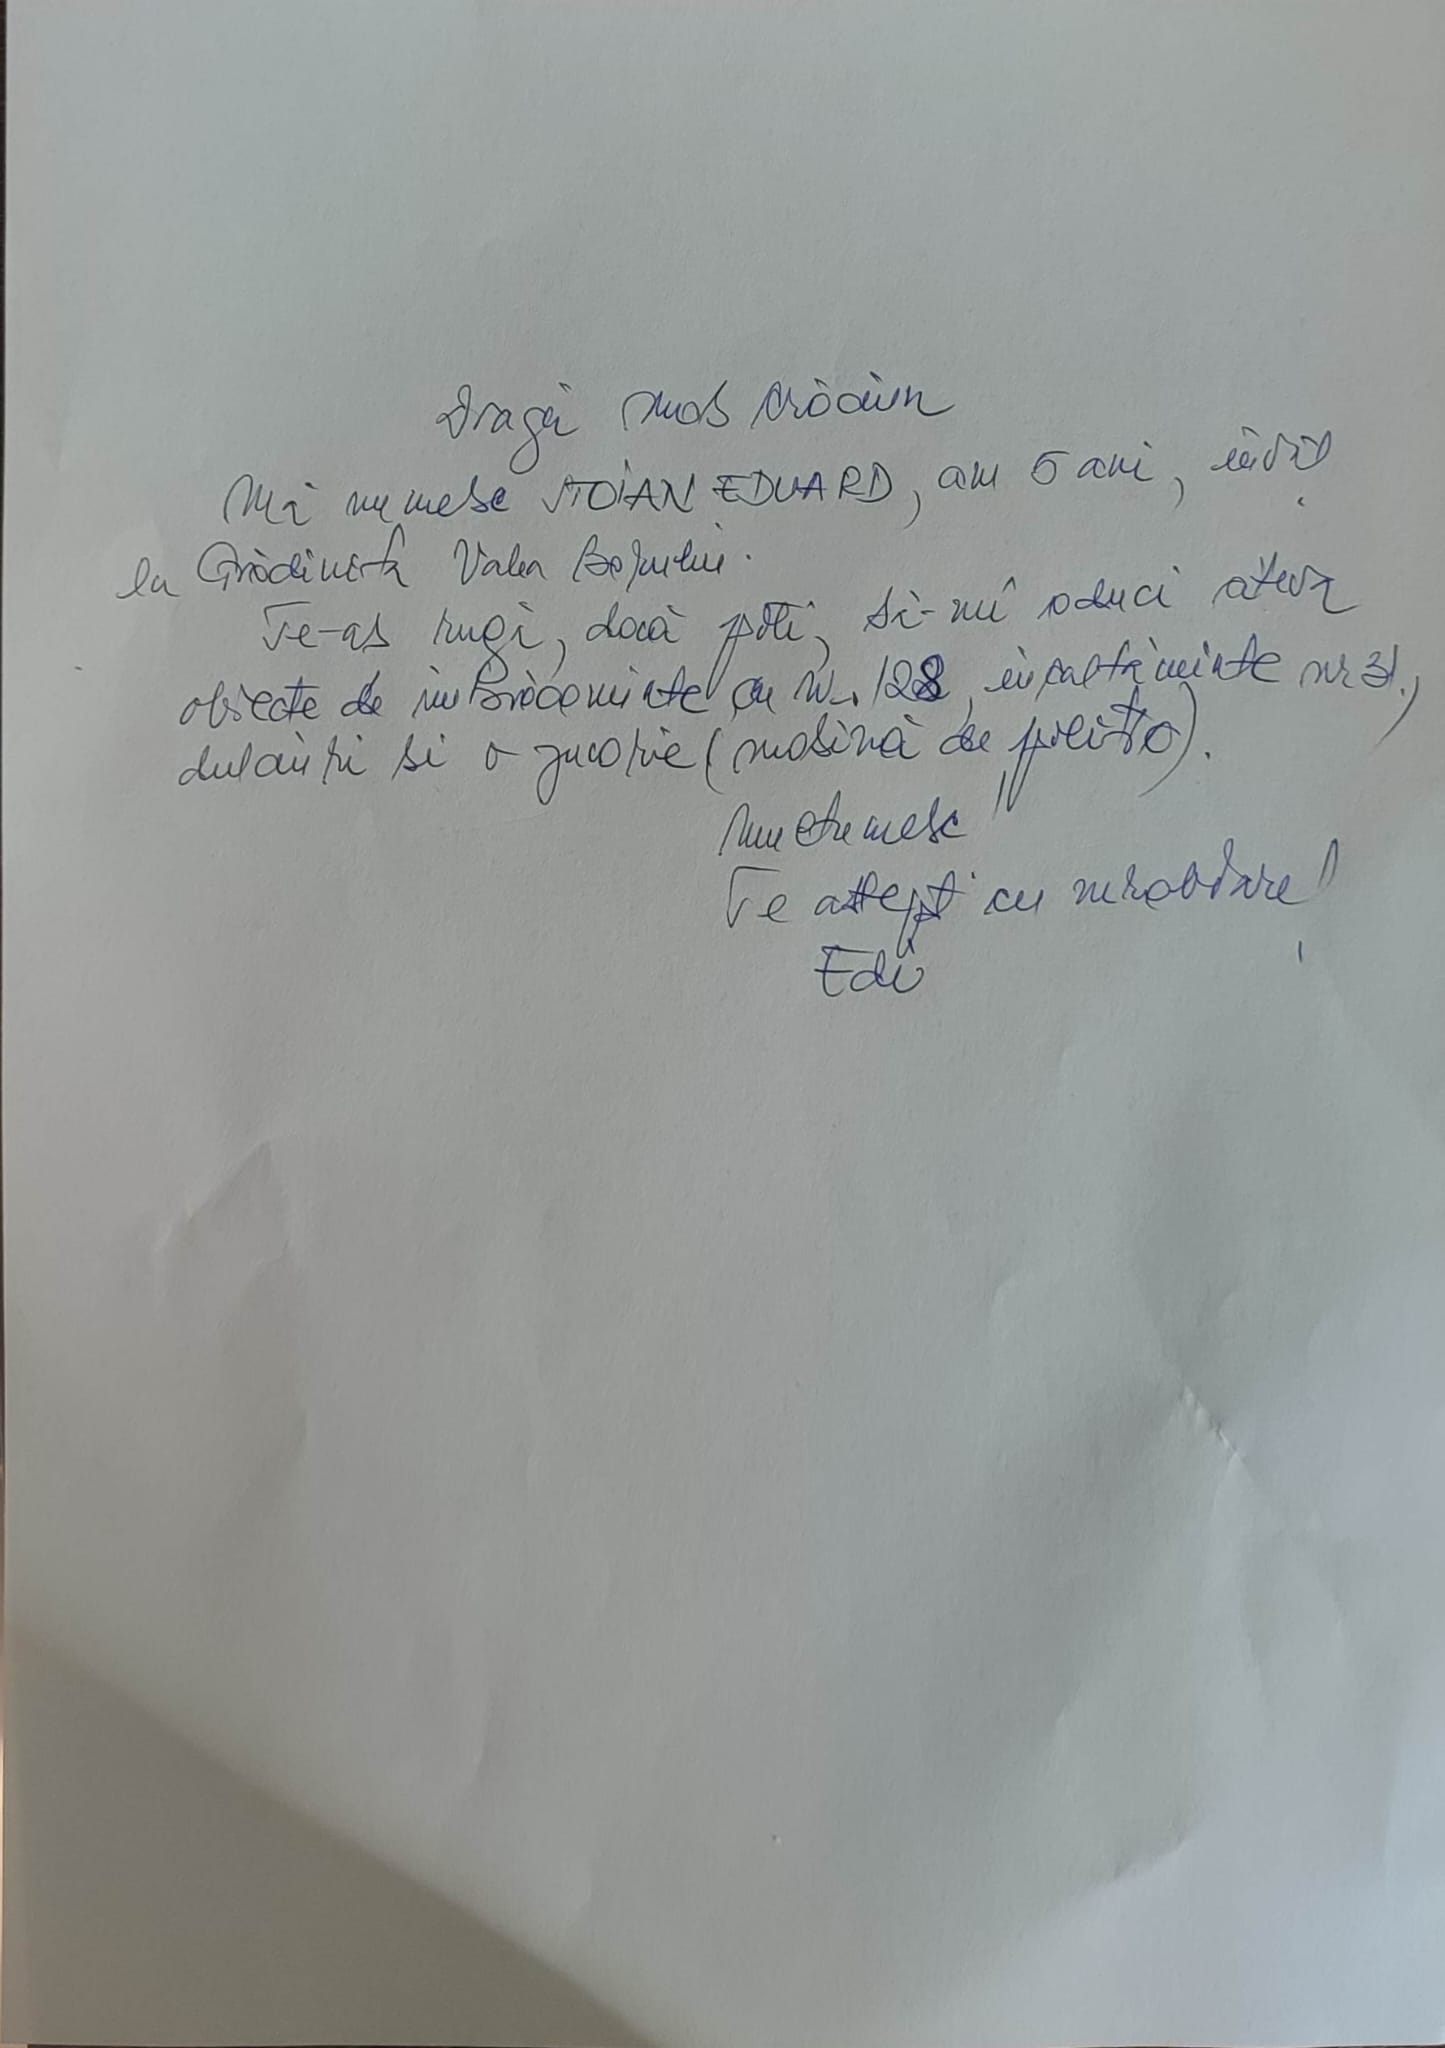 Dragă Moș Crăciun
Mă numesc STOIAN EDUARD, am 5 ani, învăț
la Grădinița Valea
Te-aș rugă, dacă poți, să-mi aduci câteva
obiecte de îmbrăcăminte cu nr. 128, încălțăminte nr 31,
dulciuri și o jucărie (mașină de poliție).
Mulțumesc
Te aștept cu nerăbdare!
Edi